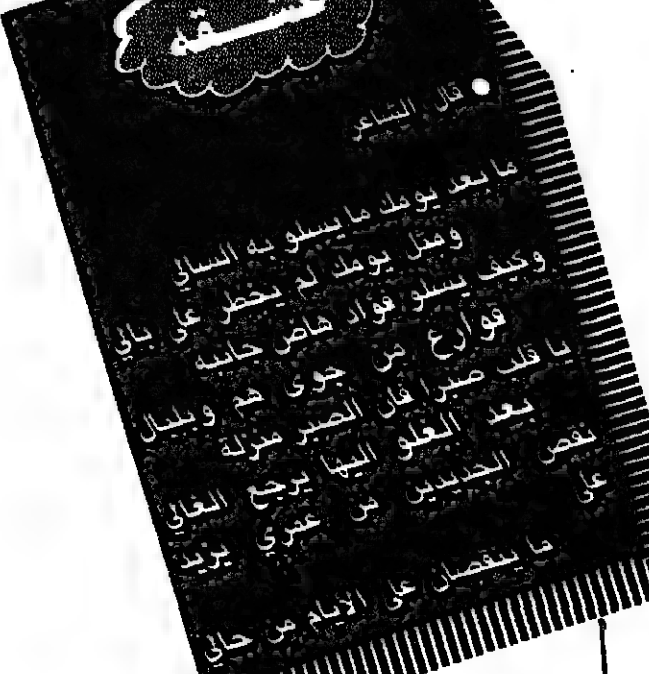 قال الشاعر
ما بعد يومك ما يسلو به السالي
ومثل يومك لم يخطر على بالي
وكيف يسلو فؤاد هاض جانبه
قوارع من جوى هم وبلبال
يا قلب صبرا فان الصبر منزلة
بعد الغلو اليها يرجع الغالي
نقص الجديدين من عمري يزيد
على
ما ينقصان على الأيام من حالي